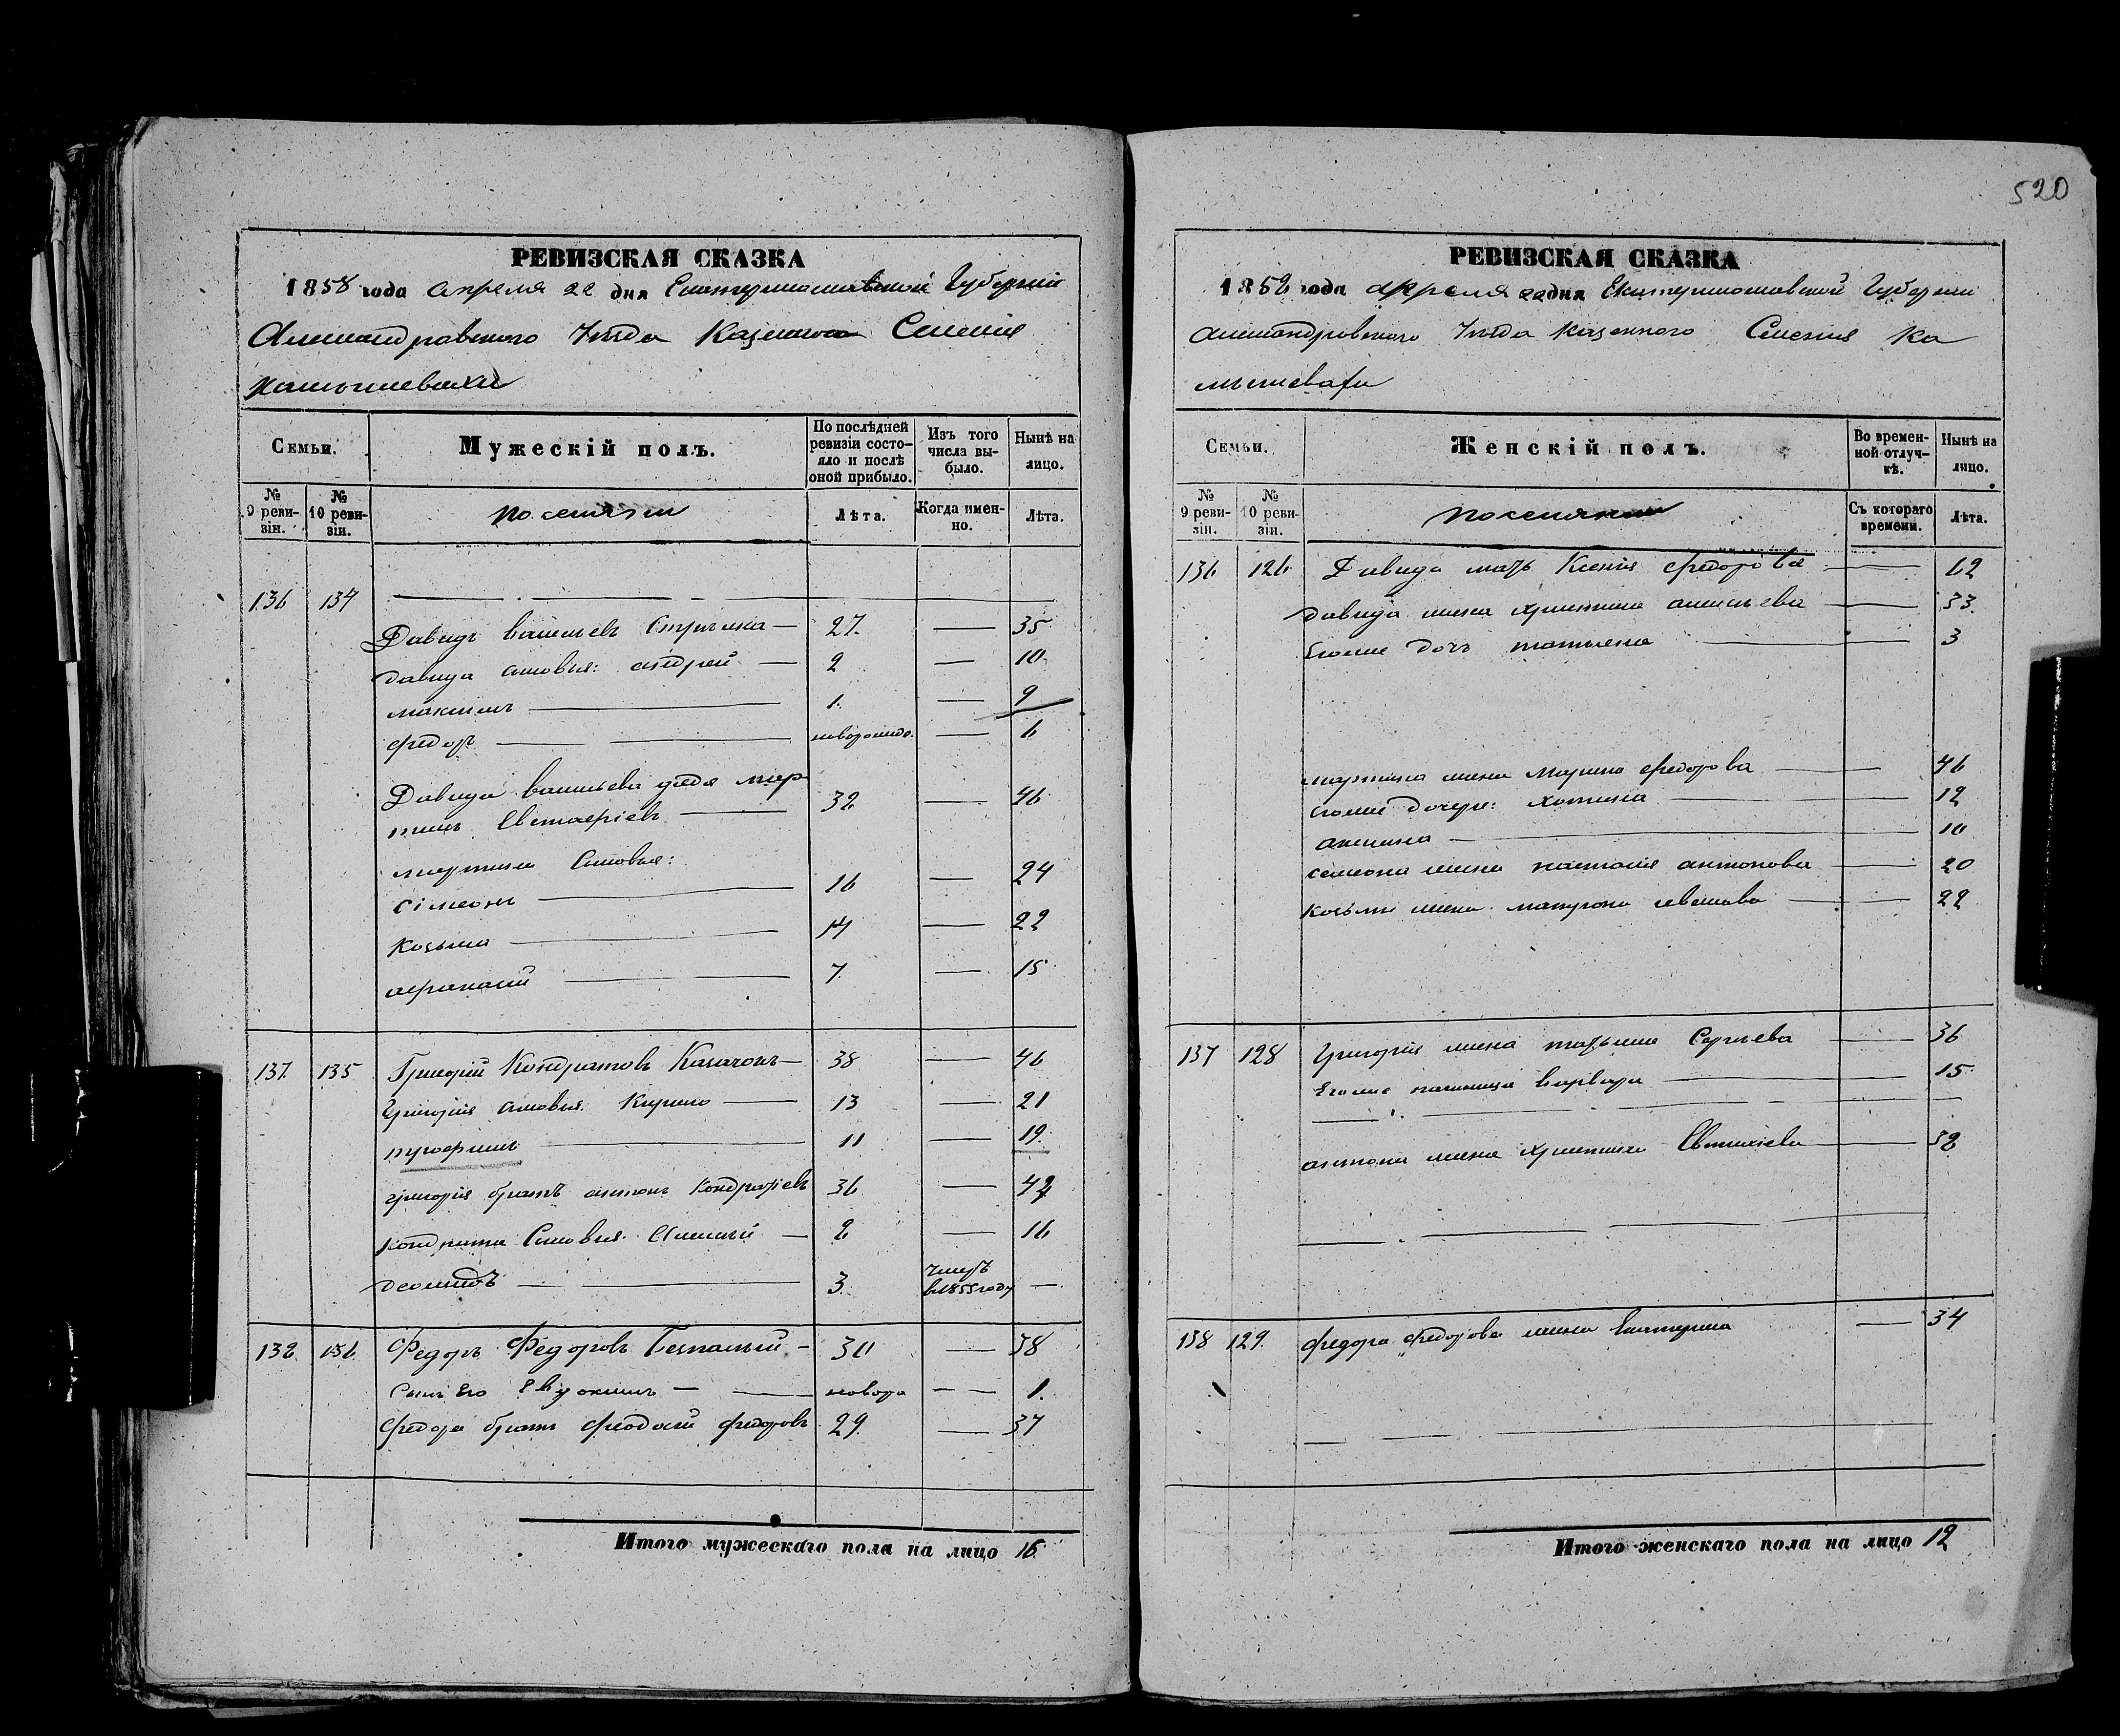 520
РЕВИЗСКАЯ СКАЗКА
1858 года апреля 22 дня Екатеринославской Губернии
Александровского Уѣзда Казенного Селения
Камышевахи
Семьи.
Мужескій полъ.
По послѣдней ревизіи состояло и послѣ оной прибыло.
Изъ того числа выбыло.
Нынѣ на лицо.
№ 9 ревизіи.
№ 10 ревизіи.
поселяни
Лѣта.
Когда именно.
Лѣта.
136 134
Давидъ васильевъ Стрълка 27. 35
давида сыновья: андрей 2 10
максимъ 1. 9
федоръ новорожд. 6
Давида васильева дядя мар
тинъ Евстафіевъ 32 46
мартина Сыновья:
сімеонъ 16 24
Козьма 14 22
афанасий 7. 15
137. 135 Григорій Кондратовъ Казачокъ 38 46
Григорія сыновья. Кирило 13 21
трофимъ 11 19.
григорія братъ антонъ Кондратіевъ 36 42
кондрата Сыновья. Алексѣй 2 16
деомидъ 3. Умеръ в 1855 году
138. 136. Федоръ Федоровъ Безпалый 30 38
Сынъ Его Евдокимъ новоро 1.
Федора братъ феодосий федоровъ 29. 37
Итого мужескаго пола на лицо 16
РЕВИЗСКАЯ СКАЗКА
1858 года апреля 22 дня Екатеринославской Губернии
александровского Уѣзда казенного Селения Ка
мышевахи
Семьи.
Женскій полъ.
Во временной отлучкѣ.
Нынѣ на лицо.
№ 9 ревизіи.
№ 10 ревизіи.
поселянки
Съ котораго времени.
Лѣта.
136 126 Давида мать Ксенія федорова 62
давида жена христина алексѣева 33.
Егоже дочь татьяна 3
мартина жена Марина федорова 46
Егоже дочери: 12
акилина 10
семиона жена настасія антонова 20
Козьмы жена матрона 22
137 128 Григорія жена татьяна Сергѣева 36
Егоже Варвара 15
антона жена христина Евтихіева 32
138 129. федора федорова жена Екатерина 34
Итого женскаго пола на лицо 12